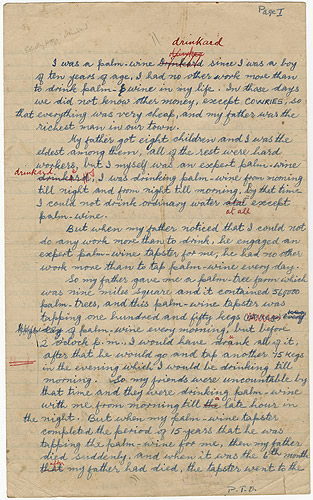 Page I
drinkard
I was a palm-wine drinkard since I was a boy
of ten years of age. I had no other work more than
to drink palm-wine in my life. In those days
we did not know other money, except COWRIES, so
that everything was very cheap, and my father was the
richest man in our town.
My father got eight children and I was the
eldest among them, all of the rest were hard
workers, but I myself was an expert palm-wine
drinkard. I was drinking palm-wine from morning
till night and from night till morning. By that time
I could not drink ordinary water at all except
palm-wine.
But when my father noticed that I could not
do any work more than to drink, he engaged an
expert palm-wine tapster for me, he had no other
work more than to tap palm-wine every day.
So my father gave me a palm-tree farm which
was nine miles square and it contained 560000
palm-trees, and this palm-wine tapster was
tapping one hundred and fifty kegs
of palm-wine every morning, but before
2 o'clock p.m., I would have drank all of it,
after that he would go and tap another 75 kegs
in the evening which I would be drinking till
morning. So my friends were uncountable by
that time and they were drinking palm-wine
with me from morning till the late hour in
the night. But when my palm-wine tapster
completed the period of 15 years that he was
tapping the palm-wine for me, then my father
died suddenly, and when it was the 6th month
that my father had died, the tapster went to the
P.T.O.